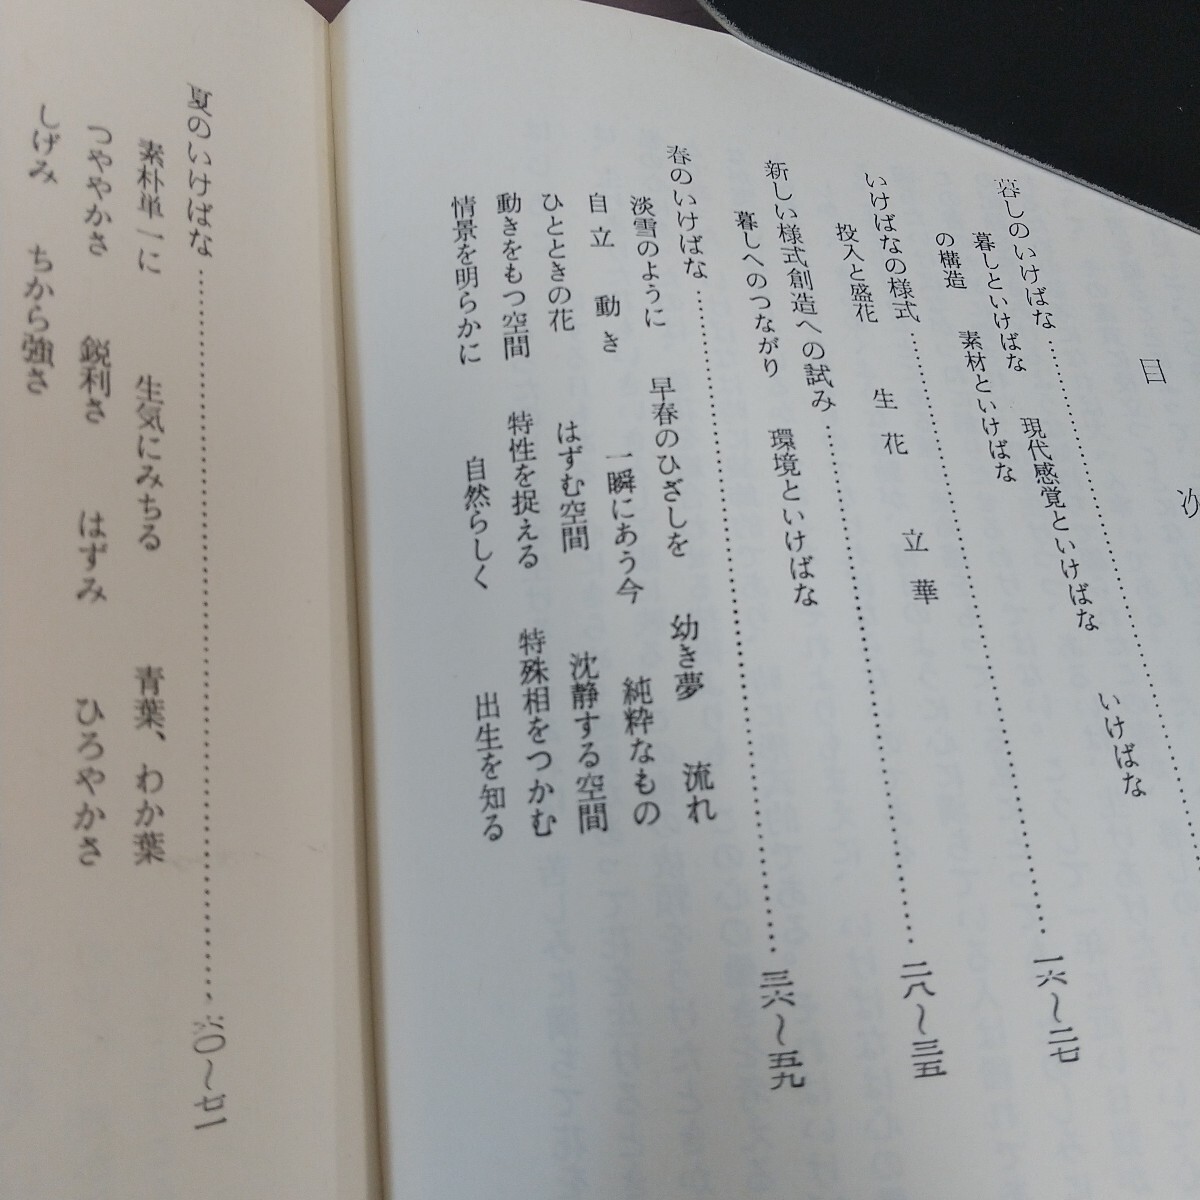 目　次
暮しのいけばな……
暮しといけばな　現代感覚といけばな　いけばな
の構造　素材といけばな
いけばなの様式……一六〜二七
投入と盛花　生花　立華
新しい様式創造への試み……二八〜三五
暮しへのつながり　環境といけばな
春のいけばな……三六〜五九
淡雪のように　早春のひざしを　幼き夢　流れ
自立　動き　一瞬にあう今　純粋なもの
ひとときの花　はずむ空間　沈静する空間
動きをもつ空間　特性を捉える　特殊相をつかむ
情景を明らかに　自然らしく　出生を知る
夏のいけばな……六〇〜七一
素朴単一に　生気にみちる　青葉、わか葉
つややかさ　鋭利さ　はずみ　ひろやかさ
しげみ　ちから強さ